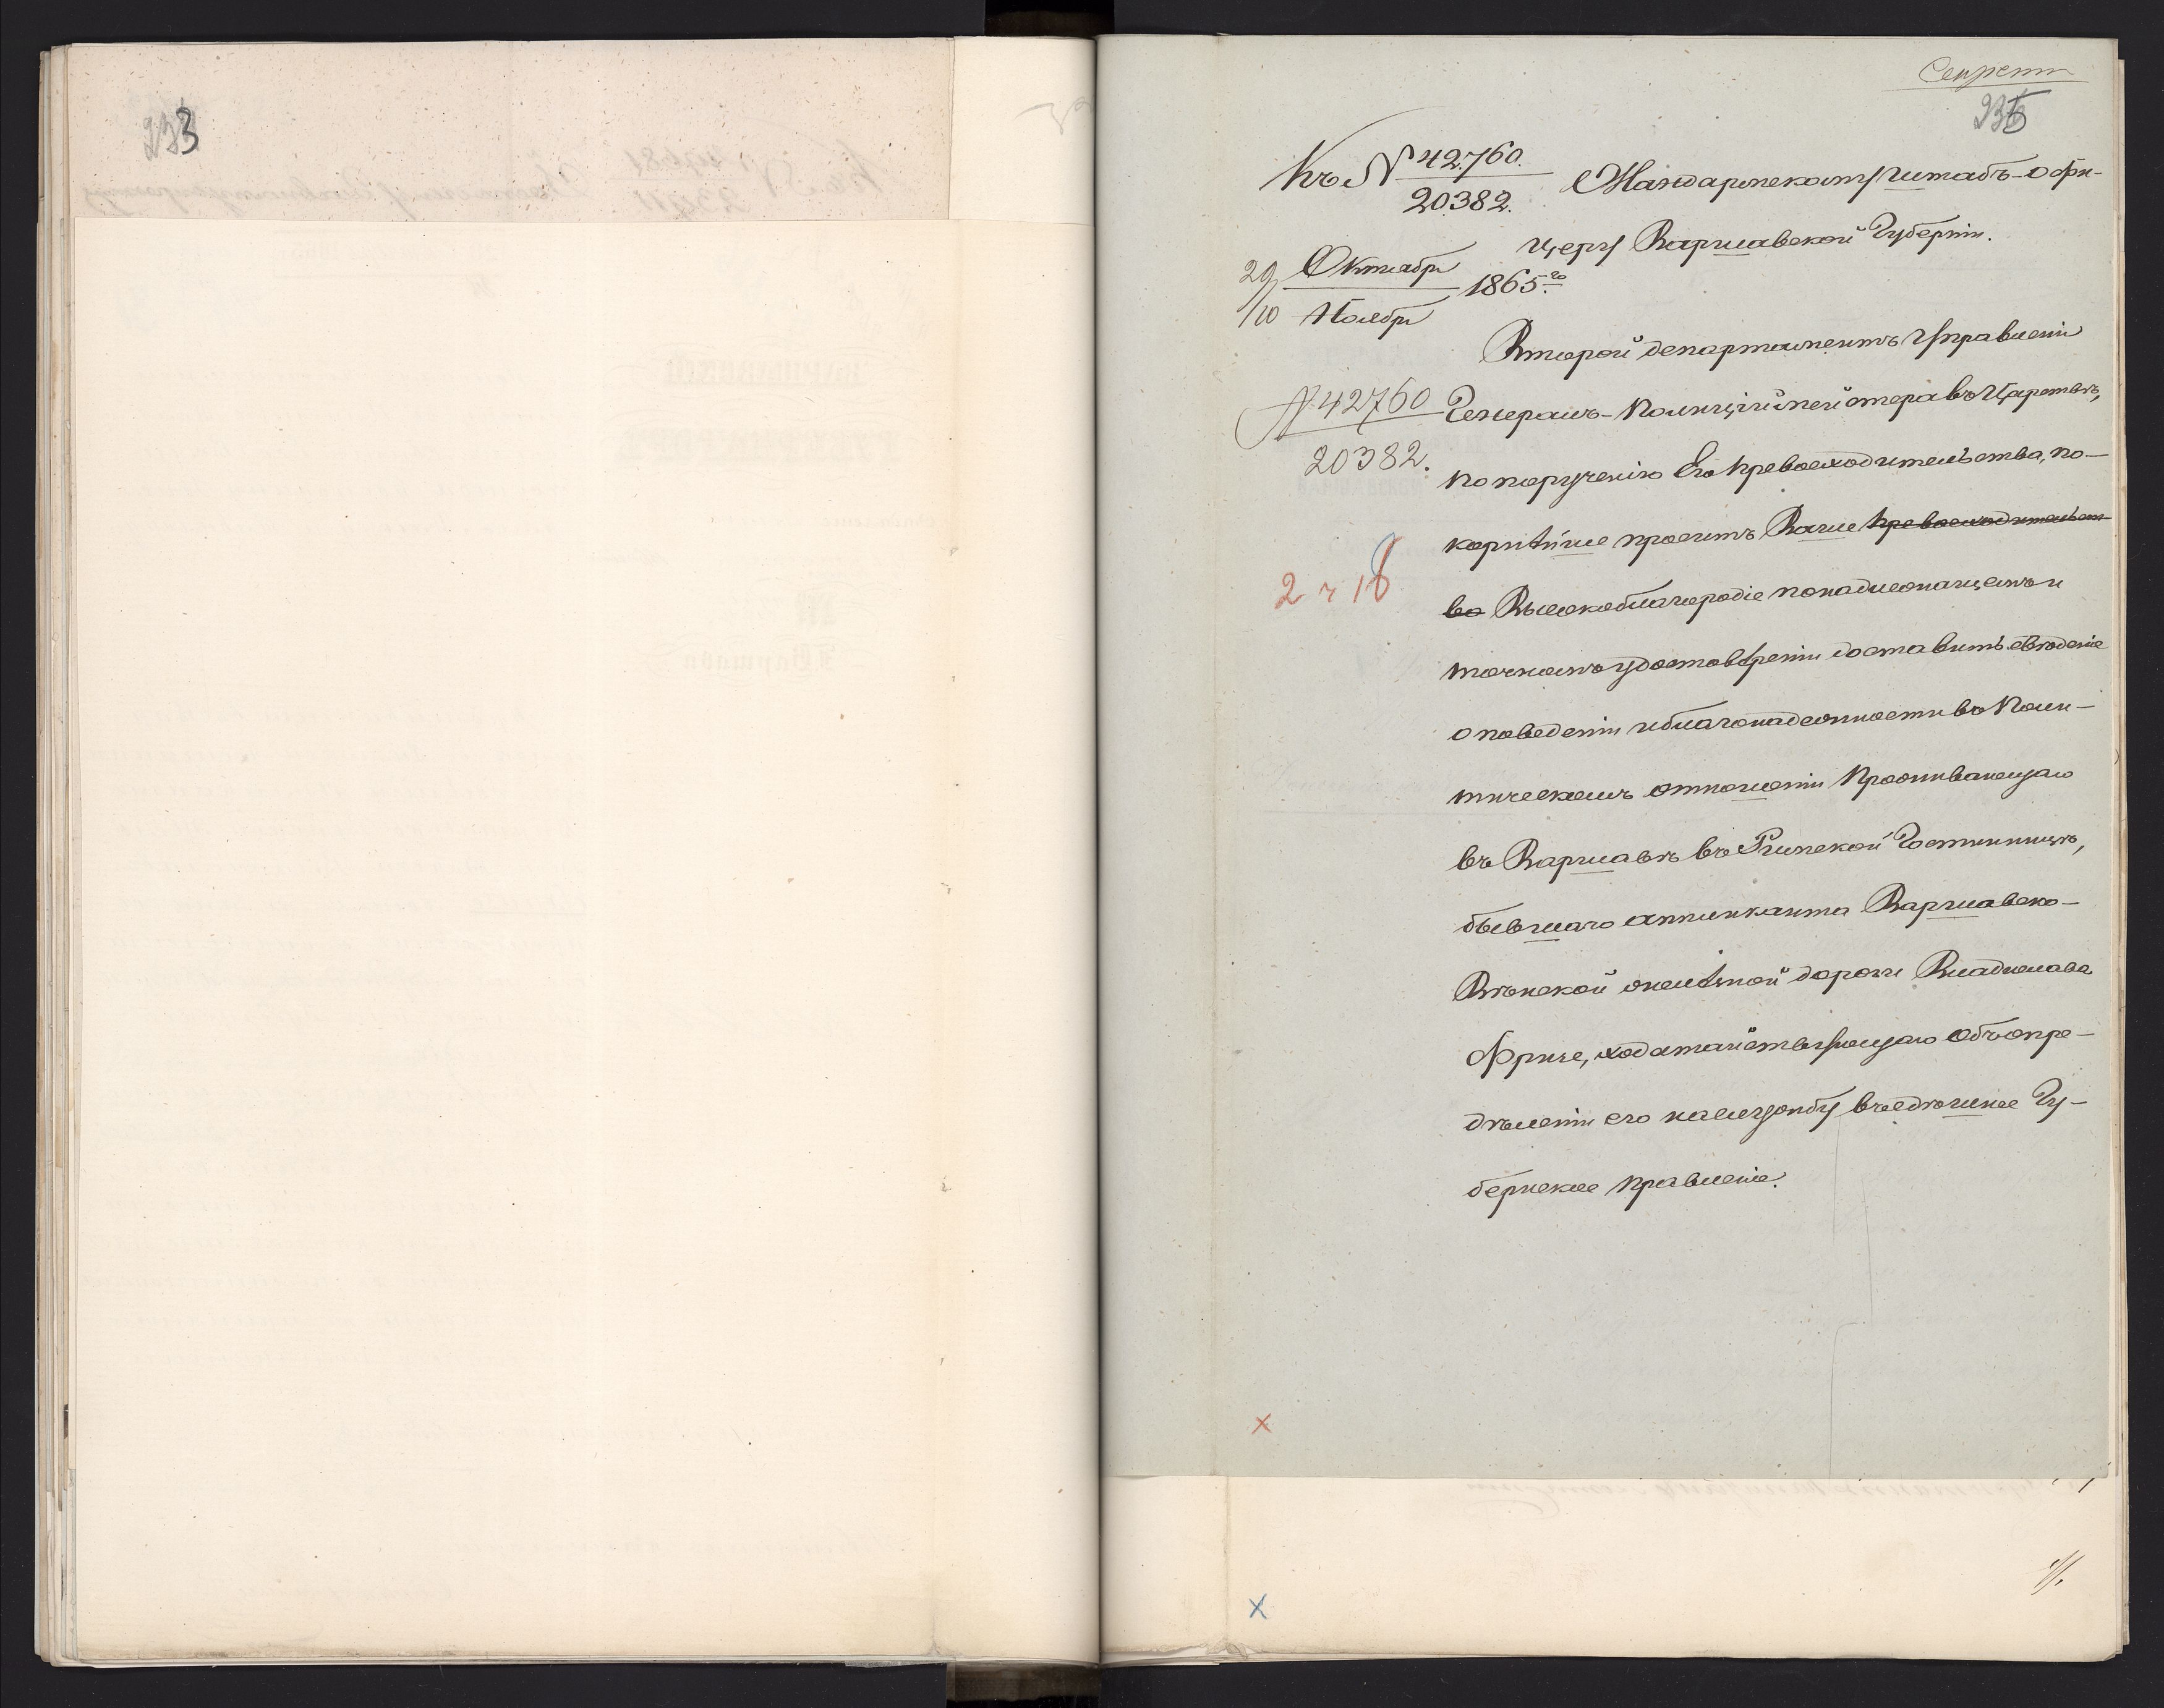 233
Секретн
235
Къ № 42760.
20382.
Жандармскому штабъ-офи-
церу Варшавской Губерніи.
29 Октября
10 Ноября
1865 го
Второй департаментъ Управленія
№ 42760
20382.
Генералъ-Полиціймейстера въ Царствѣ,
по порученію Его Превосходительства, по-
корнѣйше проситъ Ваше Превосходительст-
во Высокоблагородіе о надлежащемъ и
точномъ удостовѣреніи доставить свѣдѣніе
о поведеніи и благонадежности въ Поли-
тическомъ отношеніи Проживающаго
въ Варшавѣ въ Римской Гостинницѣ,
бывшаго аппликанта Варшавско-
Вѣнской желѣзной дороги Владислава
Фриче, ходатайствующаго объ опре-
дѣленіи его на службу въ здѣшнее Гу-
бернское Правленіе.